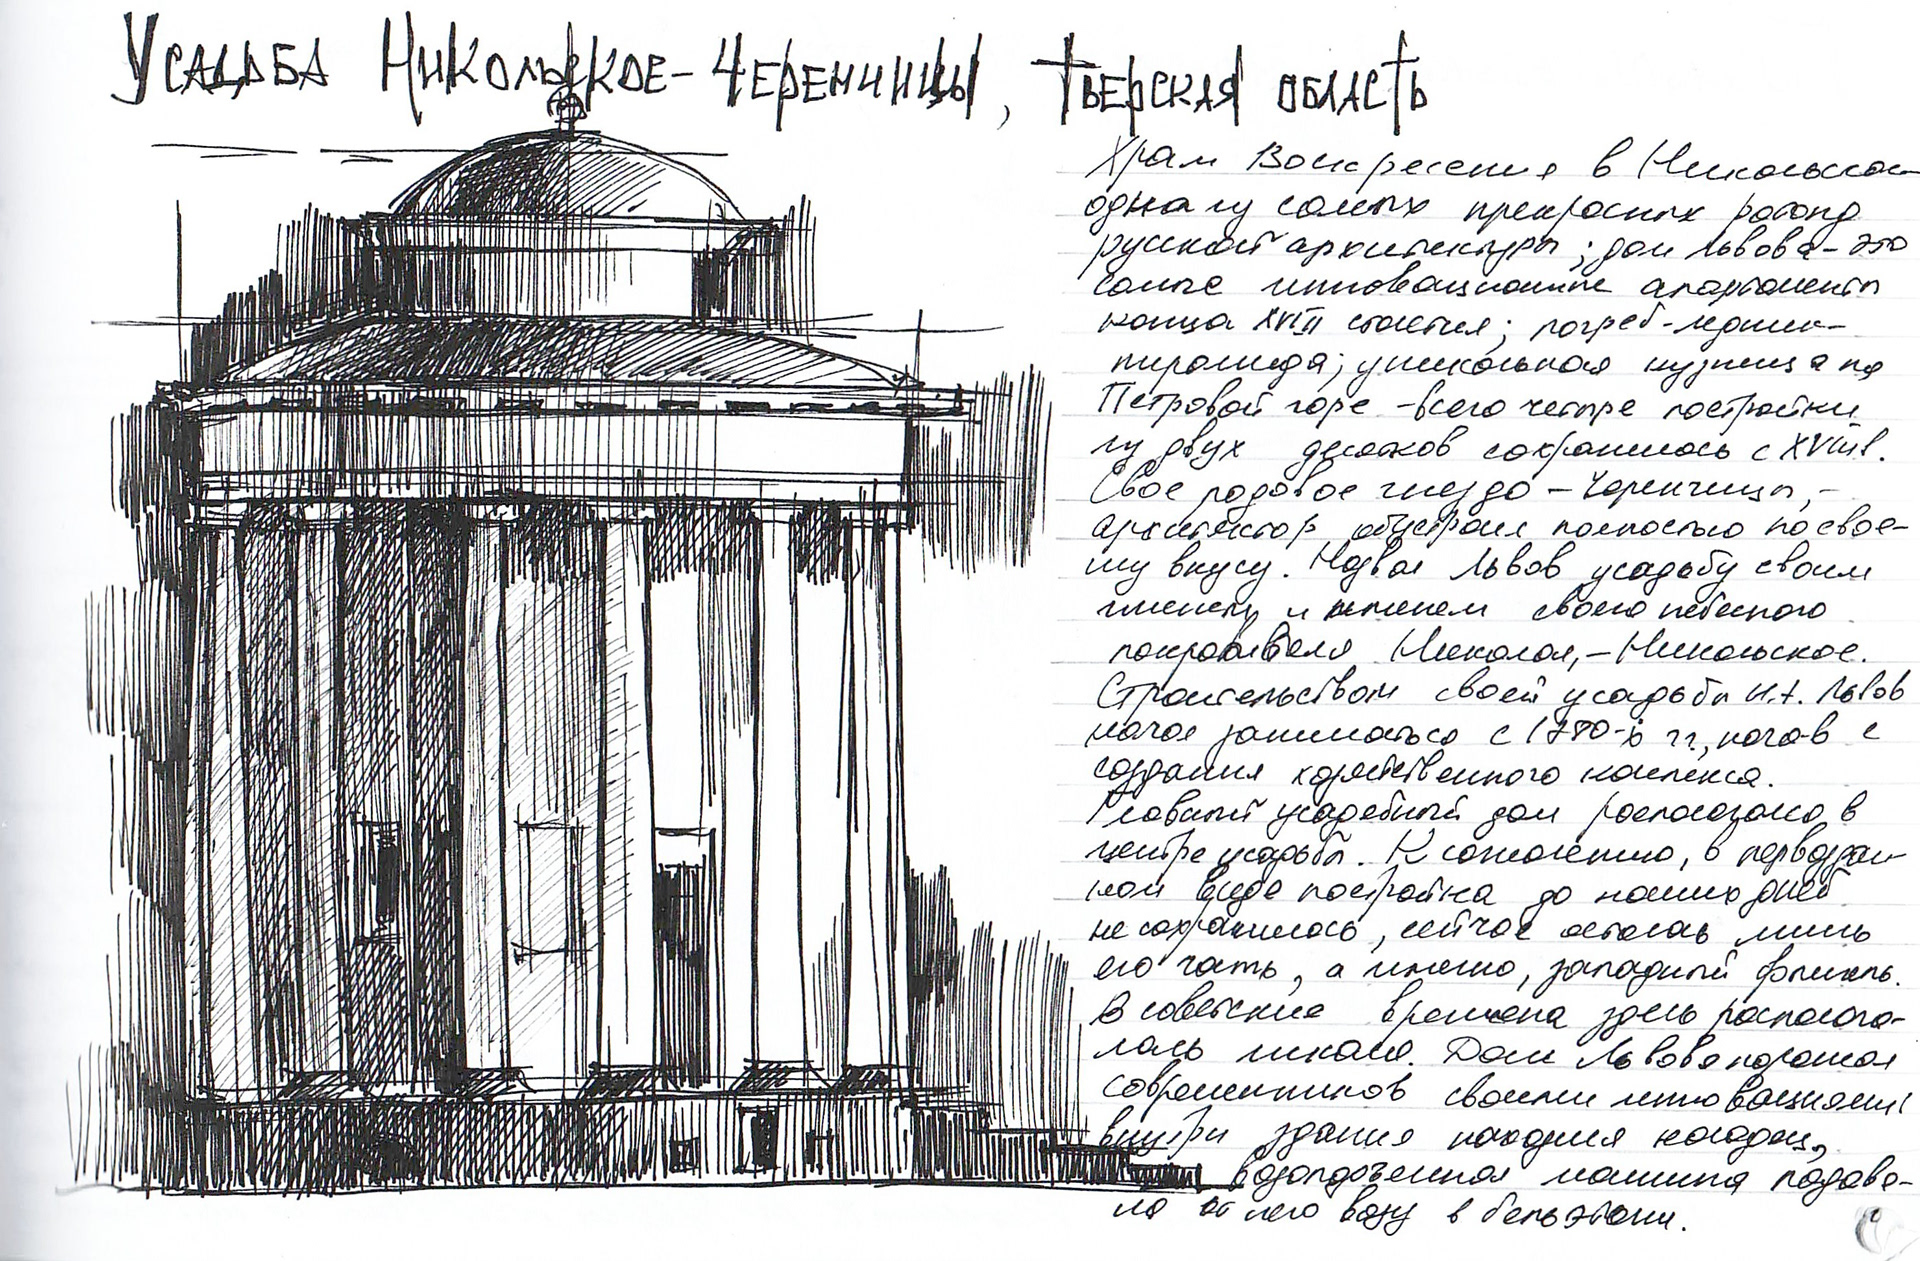 Усадьба Никольское-Черенчицы, Тверская область
Храм Воскресения в Никольском
одна из самых прекрасных ротонд
русской архитектуры; дом Львова - это
самые инновационные апартаменты
конца XVIII столетия; погреб-ледник-
пирамида; уникальная кузница на
Петровой горе - всего четыре постройки
из двух десятков сохранилось с XVIIIв.
Свое родовое гнездо - Черенчицы, -
архитектор обустроил полностью по свое-
му вкусу. Назвал Львов усадьбу своим
именем и именем своего небесного
покровителя Николая, - Никольское.
Строительством своей усадьбы Н.А. Львов
начал заниматься с 1780-х гг, начав с
создания хозяйственного комплекса.
Главный усадебный дом расположен в
центре усадьбы. К сожалению, в первоздан-
ном виде постройка до наших дней
не сохранилась, сейчас осталась лишь
его часть, а именно, западный флигель.
В советские времена здесь располага-
лась школа. Дом Львова поражал
современников своими инновациями!
внутри здания находился колодец,
водоподъемная машина подава-
ла от него воду в бельэтажи.